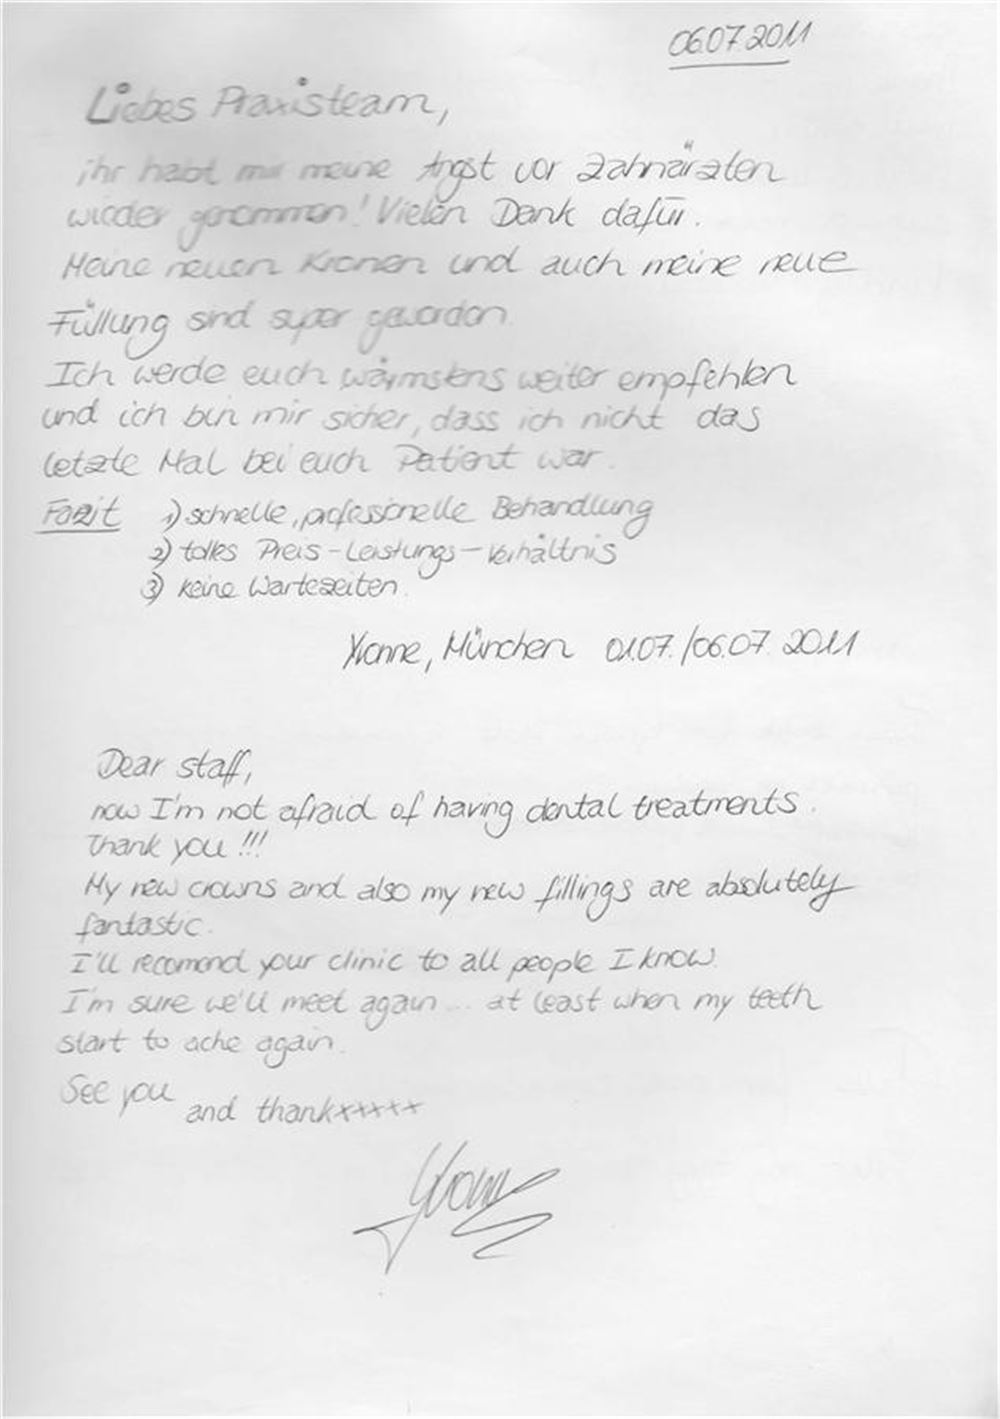 06.07.2011
Liebes Praxisteam,
ihr habt mir meine Angst vor Zahnärzten
wieder genommen! Vielen Dank dafür.
Meine neuen Kronen und auch meine neue
Füllung sind super geworden.
Ich werde euch wärmstens weiter empfehlen
und ich bin mir sicher, dass ich nicht das
letzte Mal bei euch Patient war.
Fazit 1) schnelle, professionelle Behandlung
2) tolles Preis-Leistungs-Verhältnis
3) keine Wartezeiten.
Yvonne, München 01.07./06.07. 2011
Dear staff,
now I'm not afraid of having dental treatments.
Thank you!!!
My new crowns and also my new fillings are absolutely
fantastic.
I'll recomend your clinic to all people I know.
I'm sure we'll meet again... at least when my teeth
start to ache again.
See you and thankxxxxx
Yvonne